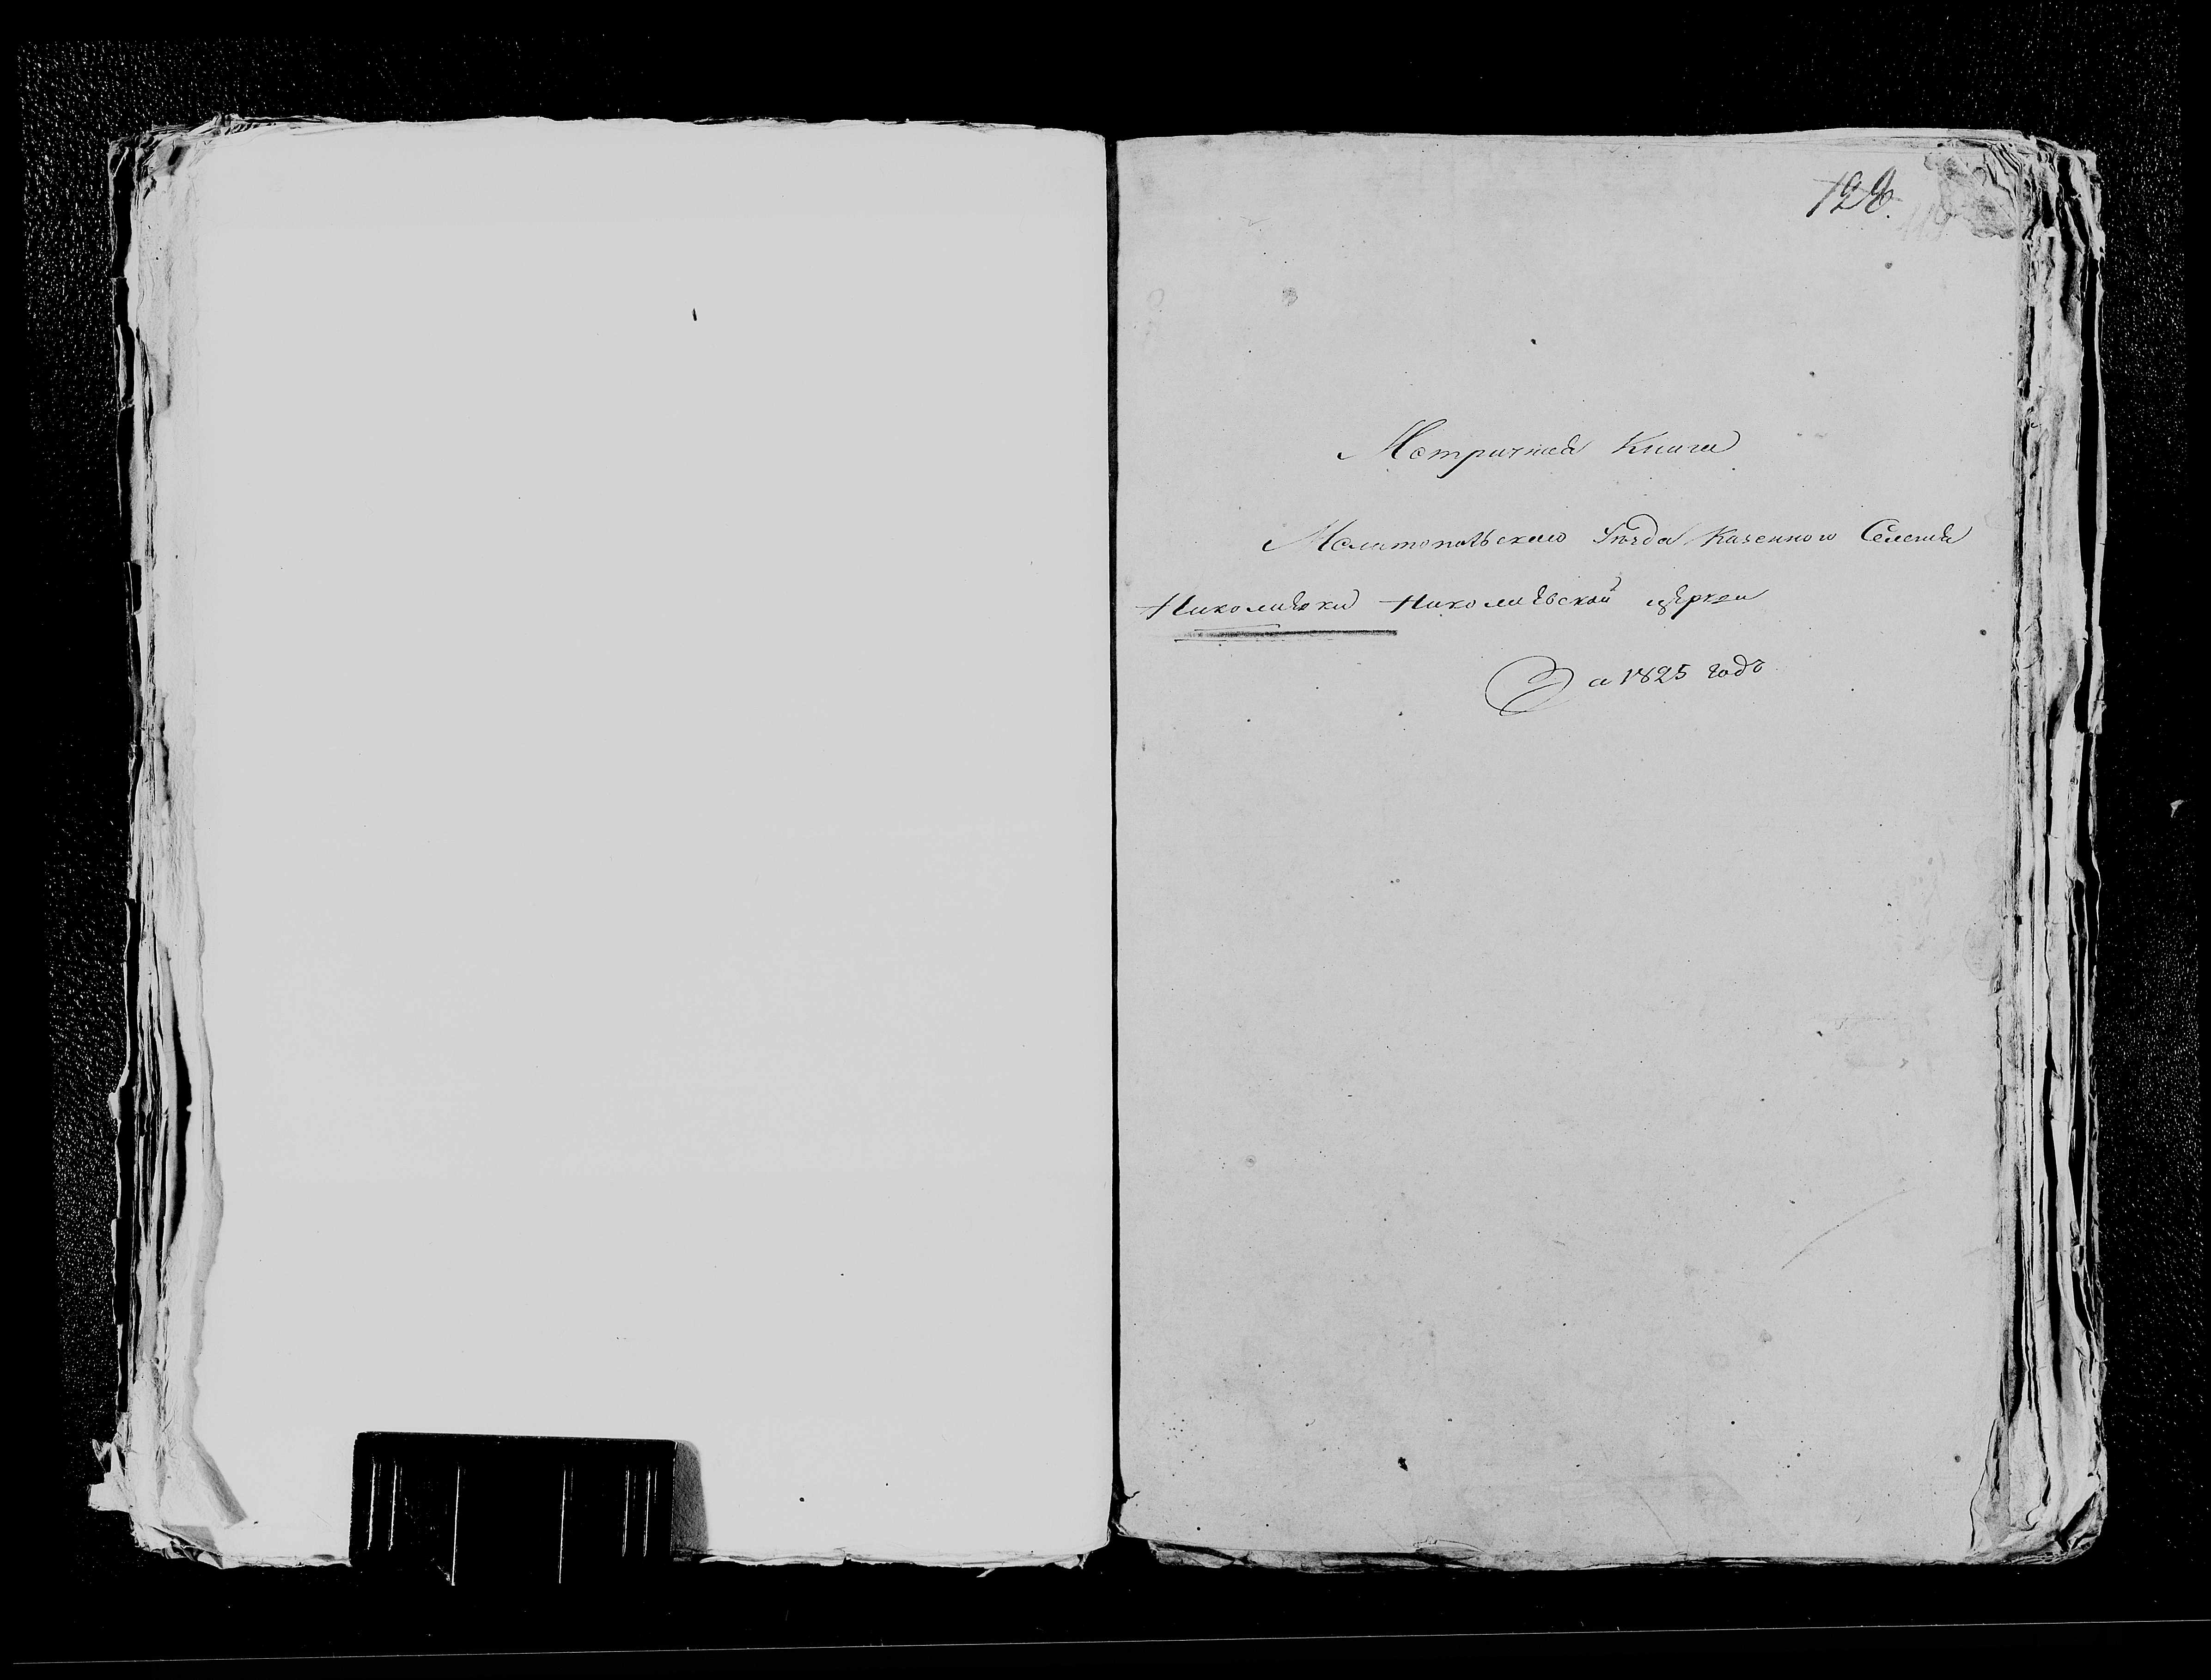 128.
Метричная Книга
Мелитопольскаго Уѣзда Казенного Селенія
Николаевки Николаевской церкви
За 1825 годъ